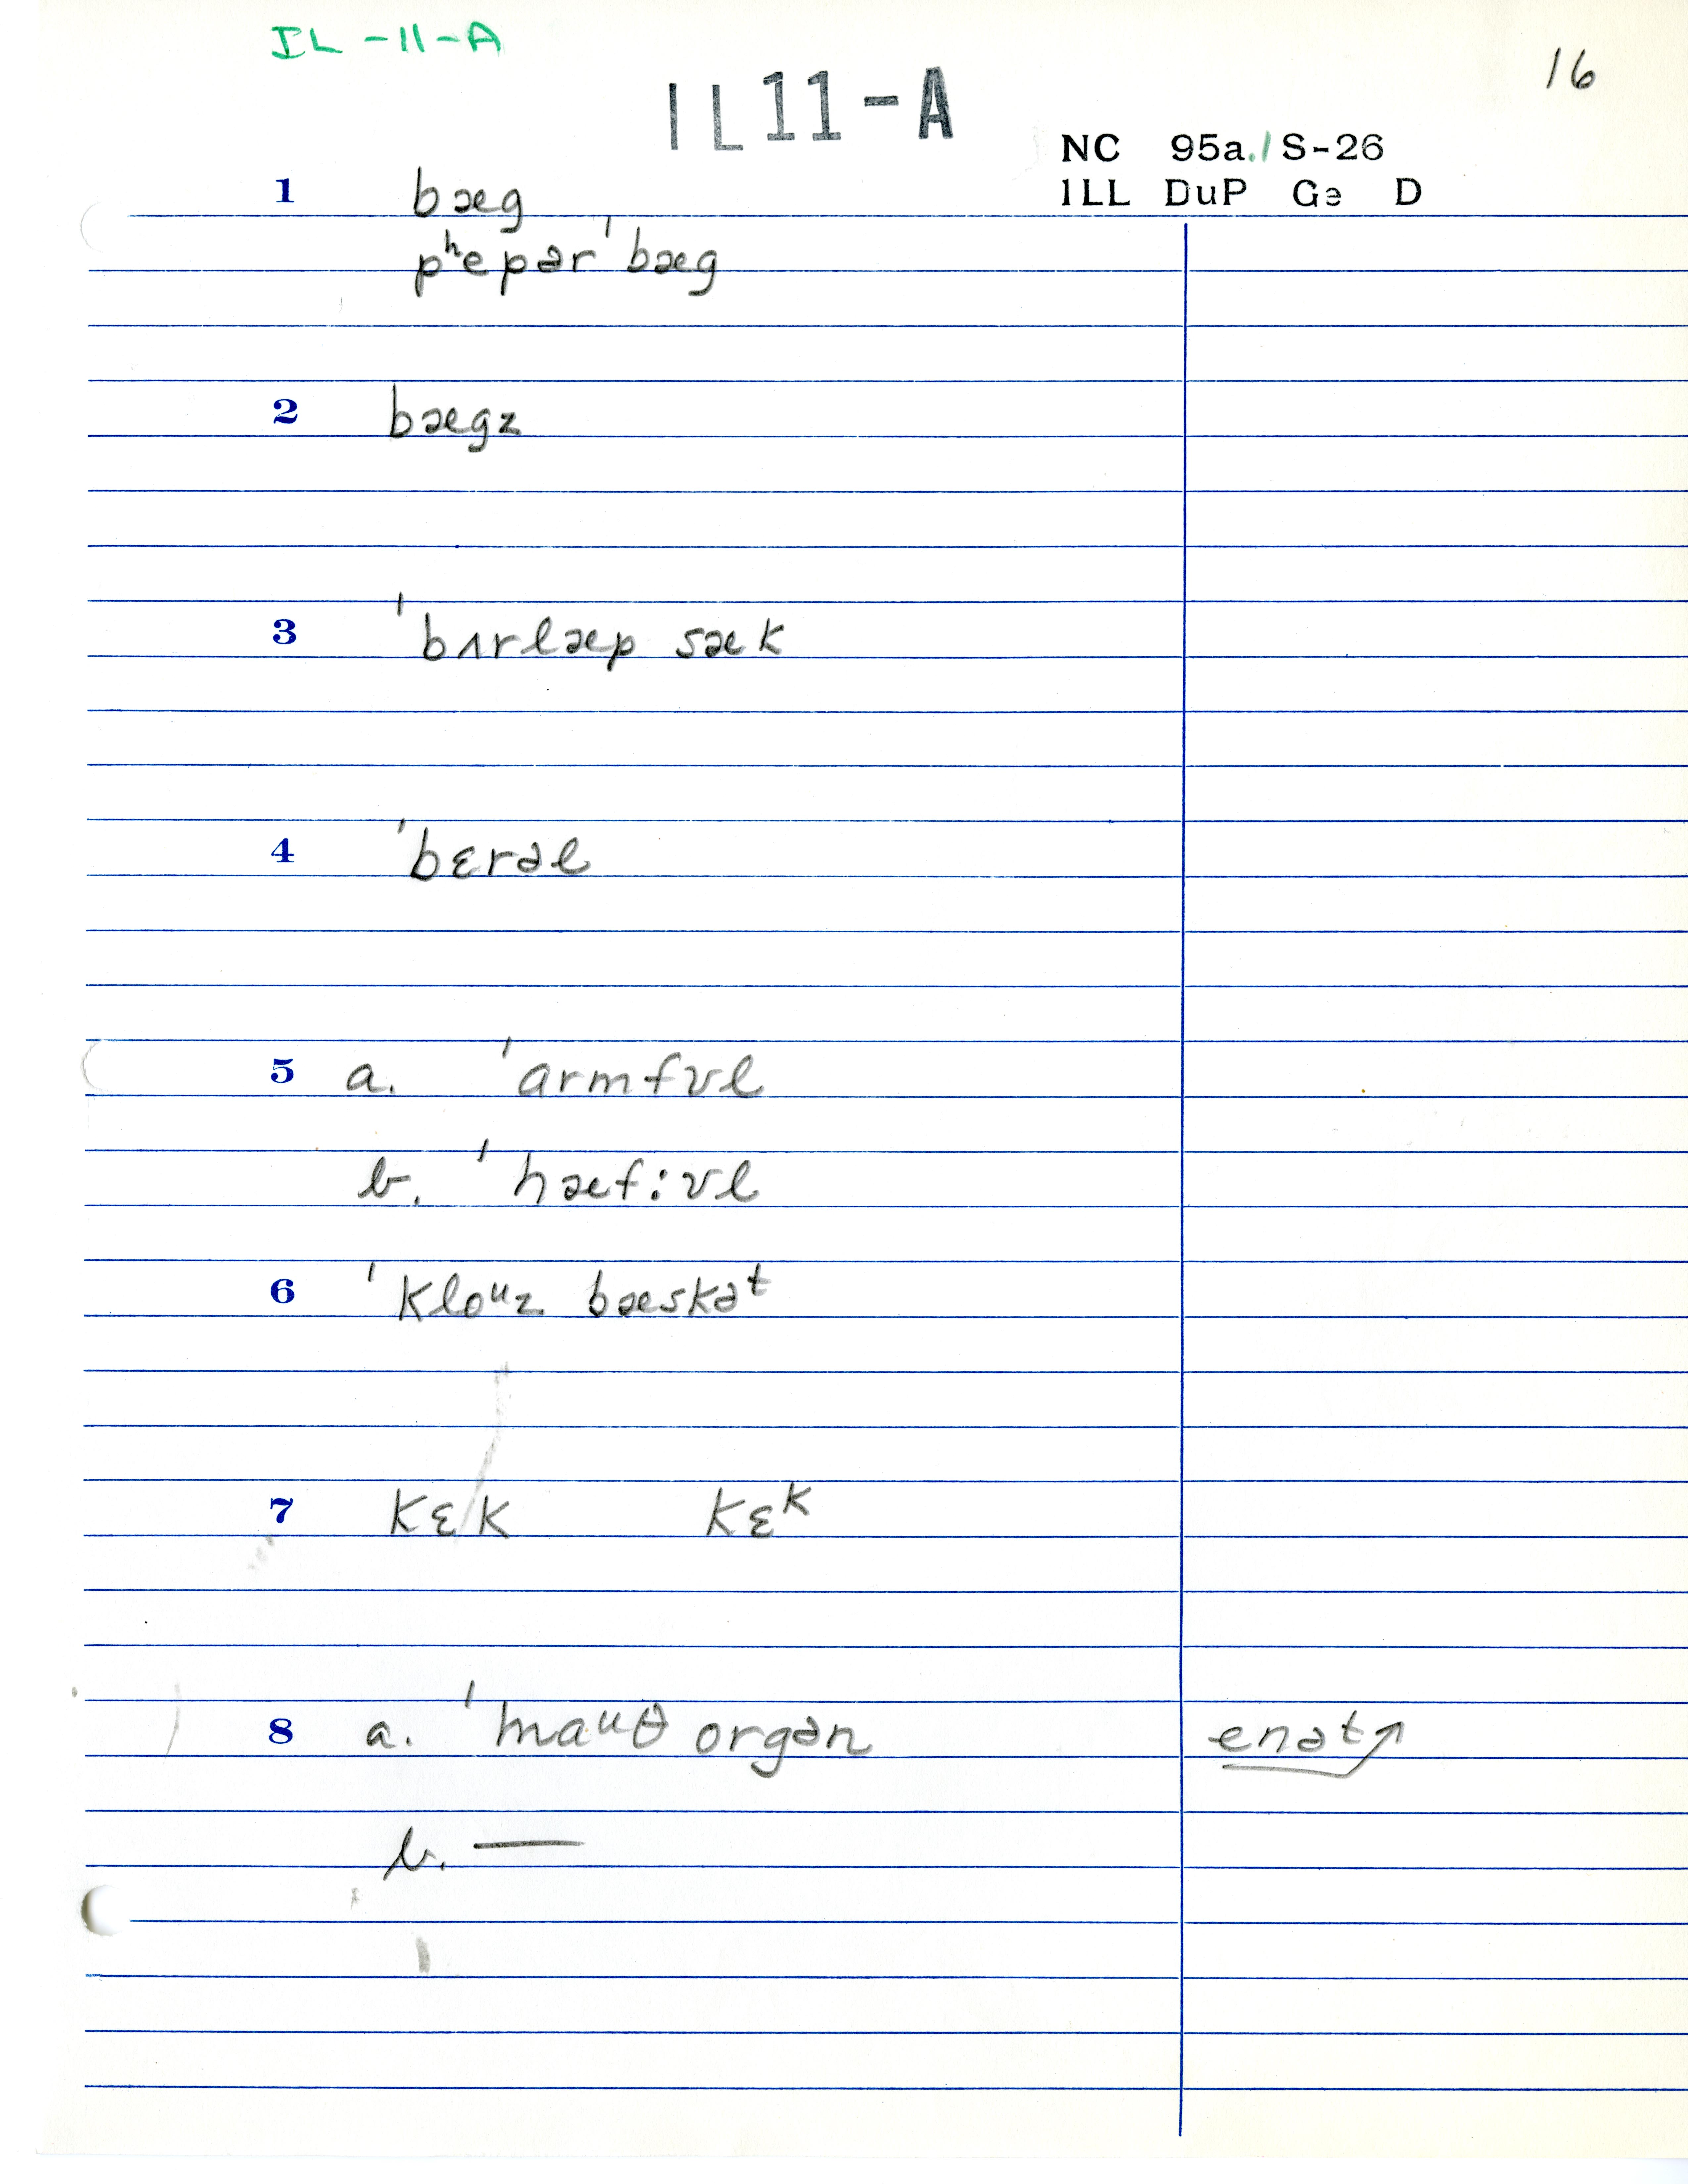 IL-11-A
16
IL11-A
NC 95a.1 S-26
ILL DuP Gə D
1 bæg
pʰepər ˈbæg
2 bægz
3 ˈbʌrlæp sæk
4 ˈbɛrəl
5 a. ˈarmfʊl
b. ˈhæf:ʊl
6 ˈkloᵘz bæskəᵗ
7 kɛk kɛᵏ
8 a. ˈmaᵘθ orgən enət↗
b. —